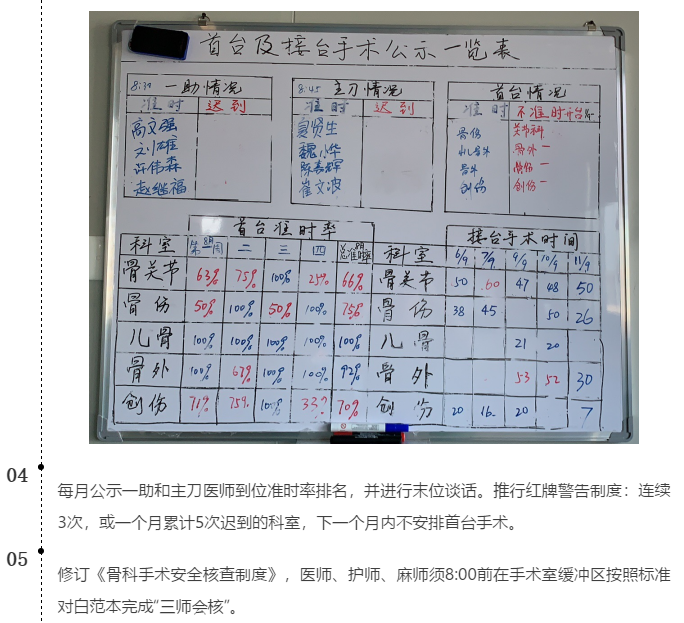 首台及接台手术公示一览表
8:30 一助情况
准时 迟到
高文强
刘雄
许伟森
赵继福
8:45 主刀情况
准时 迟到
夏贤生
魏小华
陈春辉
崔文波
首台情况
准时 不准时开台
骨伤 关节科
儿骨 骨外一
骨外 骨伤一
创伤 创伤一
首台准时率
科室 第一周 二 三 四 总准时率
骨关节 63% 75% 100% 25% 66%
骨伤 50% 100% 50% 100% 75%
儿骨 100% 100% 100% 100% 100%
骨外 100% 67% 100% 100% 92%
创伤 71% 75% 100% 33% 70%
接台手术时间
科室 6/9 7/9 9/9 10/9 11/9
骨关节 50 60 47 48 50
骨伤 38 45 50 26
儿骨 21 20
骨外 53 52 30
创伤 20 16 20 7
04
每月公示一助和主刀医师到位准时率排名，并进行末位谈话。推行红牌警告制度：连续
3次，或一个月累计5次迟到的科室，下一个月内不安排首台手术。
05
修订《骨科手术安全核查制度》，医师、护师、麻师须8:00前在手术室缓冲区按照标准
对白范本完成“三师会核”。